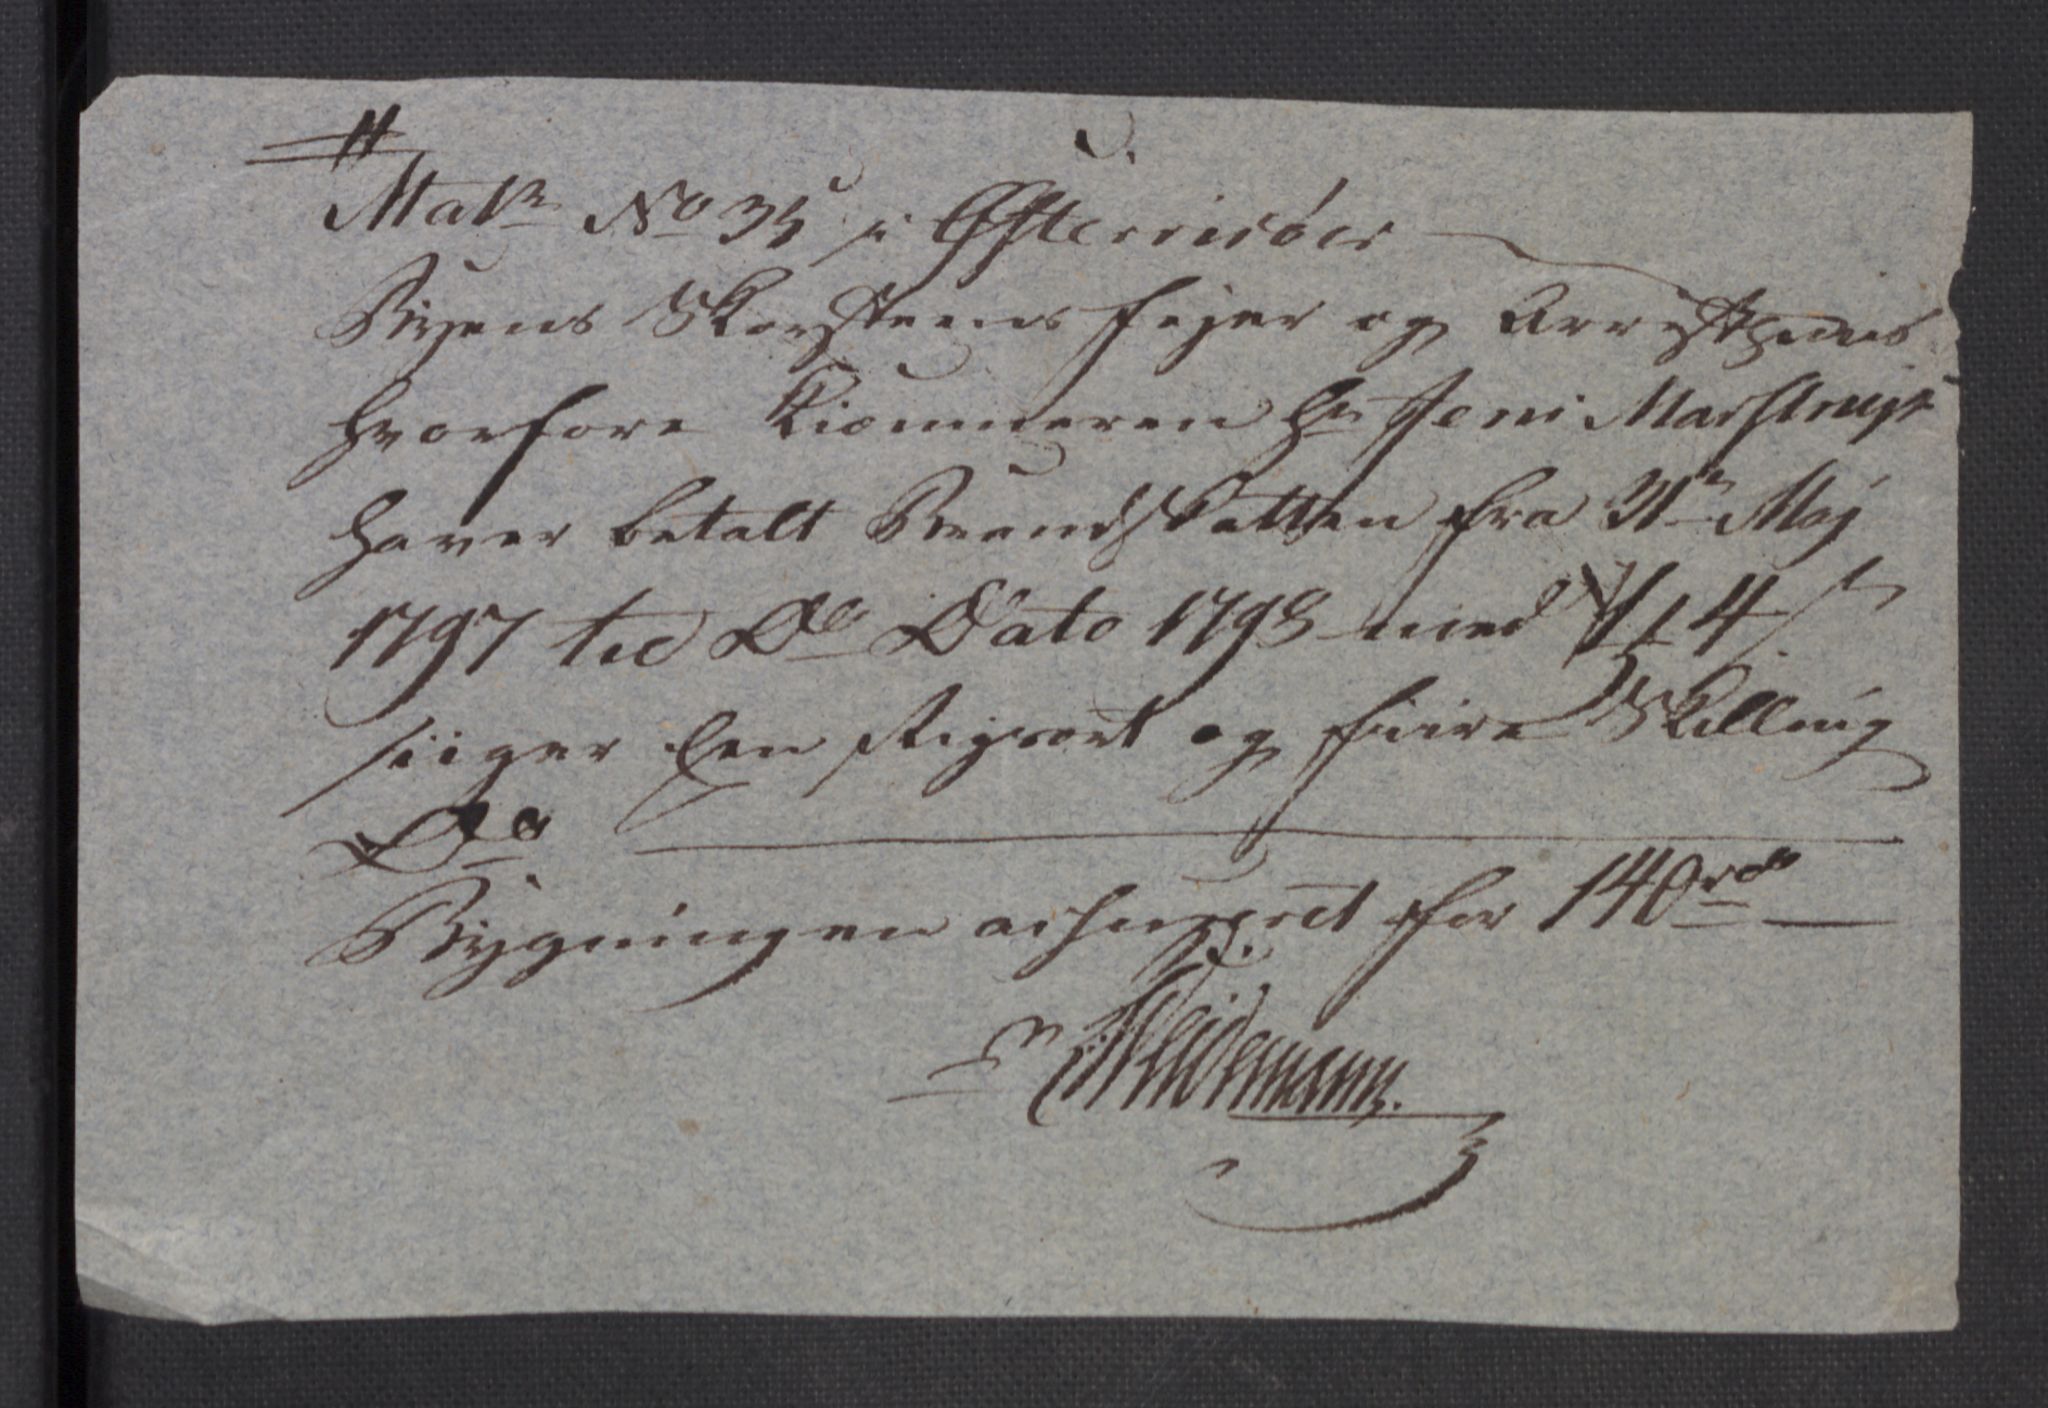 Matr No 35 i Østerriisøer
Byens Skorsteens fejer og Arresthuus
hvorfore Kiæmneren Hr Jens Marstrup
haver betalt Brandskatten fra 31te Maj
1797 til Do Dato 1798 med 1 4 s
siiger Een Rigsort og fiire Skilling
Do
Bygningen assureret for 140 rd
Weidemann.